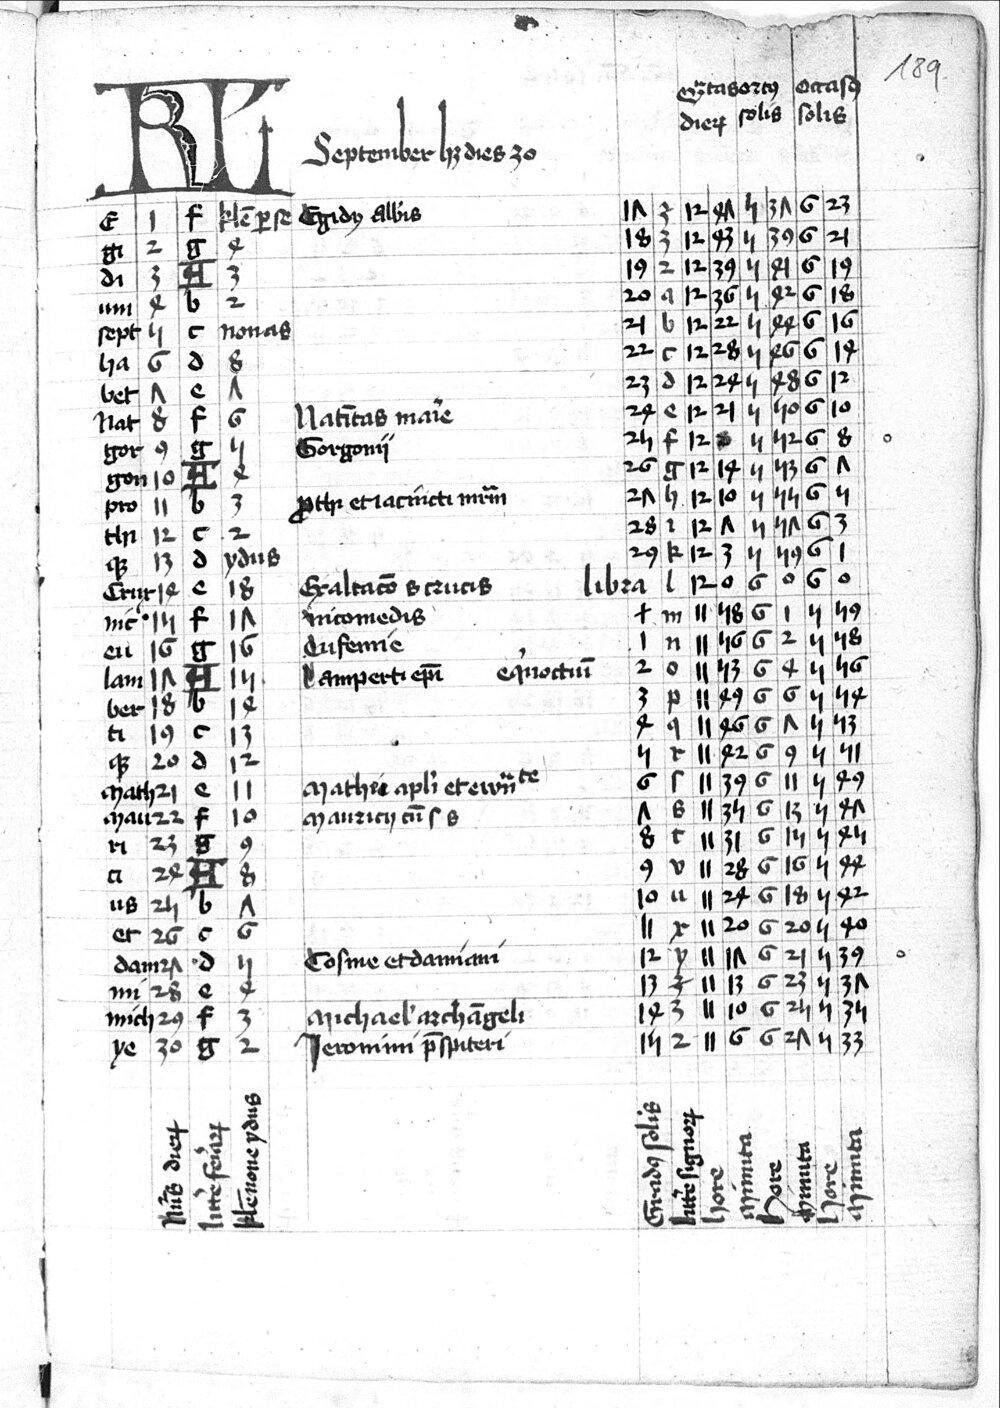 189
KL September hz dies 30
Q̄ntas dierꝝ ortꝯ solis occasꝯ solis
E 1 f klē ꝑ se Egidij Abbis 17 3 12 47 5 37 6 23
gi 2 g 4 18 3 12 43 5 39 6 21
di 3 A 3 19 2 12 39 5 41 6 19
um 4 b 2 20 a 12 36 5 42 6 18
sept 5 c nonas 21 b 12 22 5 44 6 16
ha 6 d 8 22 c 12 28 5 46 6 14
bet 7 e 7 23 d 12 24 5 48 6 12
Nat 8 f 6 Natiͥtas marie 24 e 12 21 5 50 6 10
gor 9 g 5 Gorgonij 25 f 12 5 52 6 8
gon 10 A 4 26 g 12 14 5 53 6 7
pro 11 b 3 ꝓthi et iacincti mr̄m 27 h 12 10 5 55 6 5
thi 12 c 2 28 i 12 7 5 57 6 3
qꝫ 13 d ydus 29 k 12 3 5 59 6 1
Crux 14 e 18 Exaltacō s crucis libra l 12 0 6 0 6 0
nic 15 f 17 nicomedis + m 11 58 6 1 5 59
eu 16 g 16 Eufemie 1 n 11 56 6 2 5 58
lam 17 A 15 Lamperti ep̄i eq̇noctiū 2 o 11 53 6 4 5 56
ber 18 b 14 3 p 11 49 6 6 5 54
ti 19 c 13 4 q 11 46 6 7 5 53
qꝫ 20 d 12 5 r 11 42 6 9 5 51
Math 21 e 11 Mathei apli et ewāte 6 ſ 11 39 6 11 5 49
Mau 22 f 10 Mauricij cū ſ s 7 s 11 35 6 13 5 47
ri 23 g 9 8 t 11 31 6 15 5 45
ci 24 A 8 9 v 11 28 6 16 5 44
us 25 b 7 10 u 11 24 6 18 5 42
et 26 c 6 11 x 11 20 6 20 5 40
dam 27 d 5 Cosme et damiani 12 y 11 17 6 21 5 39
mi 28 e 4 13 z 11 13 6 23 5 37
mich 29 f 3 Michael' archāgeli 14 3 11 10 6 25 5 35
ye 30 g 2 Jeronimi p̄spiteri 15 2 11 6 6 27 5 33
Nūs dierꝝ
litt̄e feriarꝝ
kl̄e none ydus
Gradꝯ solis
litt̄e signorꝝ
hore
minuta
hore
minuta
hore
minuta